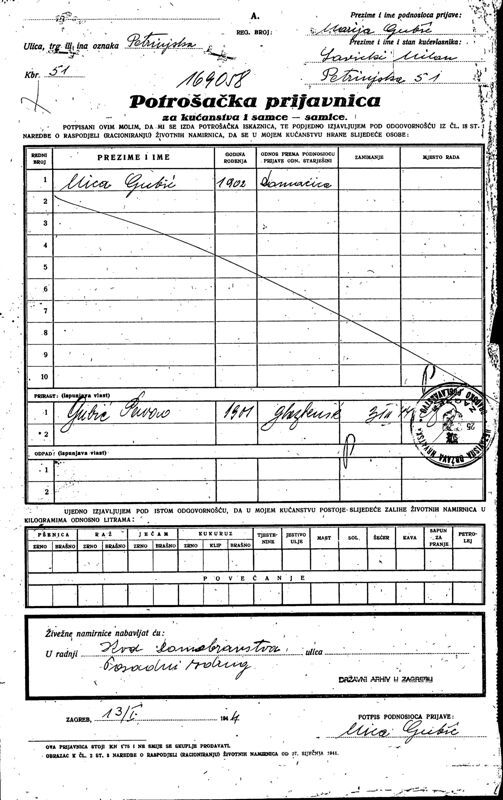 A.
REG. BROJ:
Prezime i ime podnosioca prijave:
Marija Gubić
Ulica, trg ili ina oznaka Petrinjska
Prezime i ime i stan kućevlasnika:
Savicki Milan
Kbr. 51
Petrinjska 51
169058
Potrošačka prijavnica
za kućanstva i samce – samice.
POTPISANI OVIM MOLIM, DA MI SE IZDA POTROŠAČKA ISKAZNICA, TE PODJEDNO IZJAVLJUJEM POD ODGOVORNOŠĆU IZ ČL. 18 ST.
NAREDBE O RASPODJELI (RACIONIRANJU) ŽIVOTNIH NAMIRNICA, DA SE U MOJEM KUĆANSTVU HRANE SLIJEDEĆE OSOBE:
REDNI BROJ
PREZIME I IME
GODINA ROĐENJA
ODNOS PREMA PODNOSIOCU PRIJAVE ODN. STARJEŠINI
ZANIMANJE
MJESTO RADA
1 Mica Gubić 1902 domaćica
2
3
4
5
6
7
8
9
10
PRIRAST: (ispunjava vlast)
1 Gubić 1901
2
OTPAD: (ispunjava vlast)
1
2
UJEDNO IZJAVLJUJEM POD ISTOM ODGOVORNOŠĆU, DA U MOJEM KUĆANSTVU POSTOJE SLIJEDEĆE ZALIHE ŽIVOTNIH NAMIRNICA U
KILOGRAMIMA ODNOSNO LITRAMA:
PŠENICA RAŽ JEČAM KUKURUZ TJESTENINE JESTIVO ULJE MAST SOL ŠEĆER KAVA SAPUN ZA PRANJE PETROLEJ
ZRNO BRAŠNO ZRNO BRAŠNO ZRNO BRAŠNO ZRNO KLIP BRAŠNO
POVEĆANJE
Živežne namirnice nabavljat ću:
U radnji Kod Domobranstva ulica
Posadni
DRŽAVNI ARHIV U ZAGREBU
ZAGREB, 13/I. 1944
POTPIS PODNOSIOCA PRIJAVE:
Mica Gubić
OVA PRIJAVNICA STOJI KN 1.75 I NE SMIJE SE SKUPLJE PRODAVATI.
OBRAZAC K ČL. 2 ST. 2 NAREDBE O RASPODJELI (RACIONIRANJU) ŽIVOTNIH NAMIRNICA OD 27. SIJEČNJA 1941.